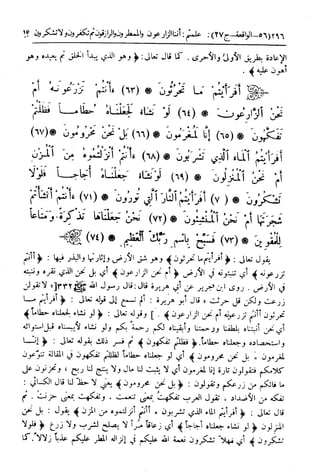 ٢٩٦ (٥٦—الواقعة—ج٢٧): علمتم: أأنتم الزارعون والممطرون والرازقون ثم تكفرون ولا تشكرون
الإعادة بطريق الأولى والأحرى. كما قال تعالى: ﴿وهو الذي يبدأ الخلق ثم يعيده وهو
أهون عليه﴾.
أَفَرَأَيْتُم مَّا تَحْرُثُونَ (٦٣) ءَأَنتُمْ تَزْرَعُونَهُ أَمْ
نَحْنُ الزَّارِعُونَ (٦٤) لَوْ نَشَاءُ لَجَعَلْنَاهُ حُطَامًا فَظَلْتُمْ
تَفَكَّهُونَ (٦٥) إِنَّا لَمُغْرَمُونَ (٦٦) بَلْ نَحْنُ مَحْرُومُونَ (٦٧)
أَفَرَأَيْتُمُ الْمَاءَ الَّذِي تَشْرَبُونَ (٦٨) ءَأَنتُمْ أَنزَلْتُمُوهُ مِنَ الْمُزْنِ
أَمْ نَحْنُ الْمُنزِلُونَ (٦٩) لَوْ نَشَاءُ جَعَلْنَاهُ أُجَاجًا فَلَوْلَا
تَشْكُرُونَ (٧٠) أَفَرَأَيْتُمُ النَّارَ الَّتِي تُورُونَ (٧١) ءَأَنتُمْ أَنشَأْتُمْ
شَجَرَتَهَا أَمْ نَحْنُ الْمُنشِئُونَ (٧٢) نَحْنُ جَعَلْنَاهَا تَذْكِرَةً وَمَتَاعًا
لِّلْمُقْوِينَ (٧٣) فَسَبِّحْ بِاسْمِ رَبِّكَ الْعَظِيمِ (٧٤)
يقول تعالى: ﴿أفرأيتم ما تحرثون﴾ وهو شق الأرض وإثارتها والبذر فيها: ﴿أأنتم
تزرعونه﴾ أي تنبتونه في الأرض ﴿أم نحن الزارعون﴾ أي بل نحن الذي نقره وننبته
في الأرض. روى ابن جرير عن أبي هريرة قال: قال رسول الله ﷺ «لا تقولن
زرعت ولكن قل حرثت» قال أبو هريرة: ألم تسمع إلى قوله تعالى: ﴿أفرأيتم ما
تحرثون أأنتم تزرعونه أم نحن الزارعون﴾. وقوله تعالى: ﴿لو نشاء لجعلناه حطاماً﴾
أي نحن أنبتناه بلطفنا ورحمتنا وأبقيناه لكم رحمة بكم ولو نشاء لأيبسناه قبل استوائه
واستحصاده وجعلناه حطاماً. ﴿فظلتم تفكهون﴾ ثم فسر ذلك بقوله تعالى: ﴿إنا
لمغرمون ـ بل نحن محرومون﴾ أي لو جعلناه حطاماً لظلتم تفكهون في المقالة تنوعون
كلامكم فتقولون تارة إنا لمغرمون أي لا يثبت لنا مال ولا ينتج لنا ربح، وتحزنون على
ما فاتكم من زرعكم وتقولون: ﴿بل نحن محرومون﴾ يعني لا حظ لنا قال الكسائي:
تفكه من الأضداد، تقول العرب تفكهت بمعنى تنعمت. وتفكهت بمعنى حزنت. ثم
قال تعالى: ﴿أفرأيتم الماء الذي تشربون. أأنتم أنزلتموه من المزن﴾ يقول: بل نحن
المنزلون ﴿لو نشاء جعلناه أجاجاً﴾ أي زعاقاً مراً لا يصلح لشرب ولا زرع ﴿فلولا
تشكرون﴾ أي فهلا تشكرون نعمة الله عليكم في إنزاله المطر عليكم عذباً زلالاً. كما